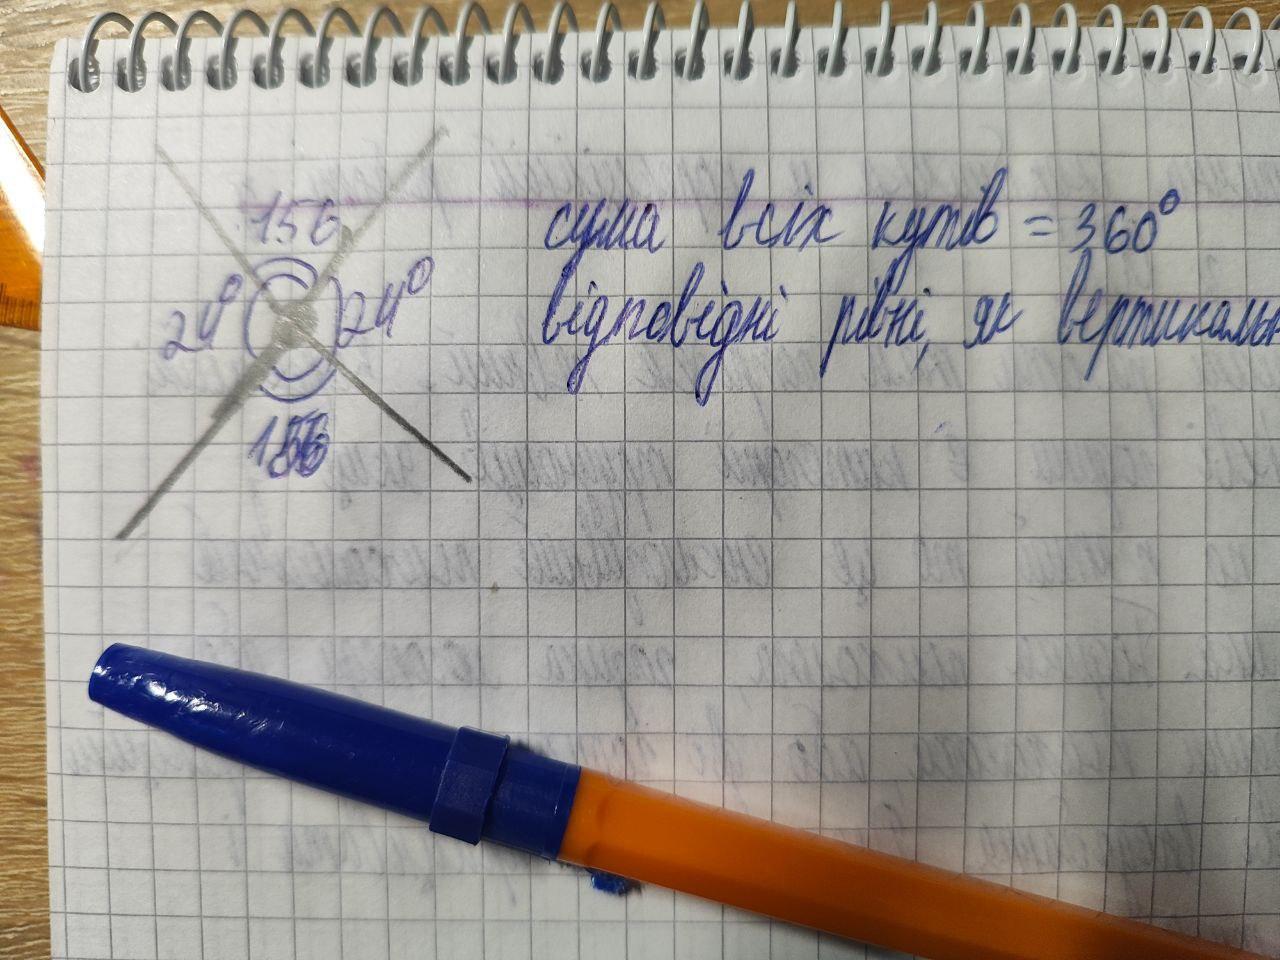 156
24° 24°
156
сума всіх кутів = 360°
відповідні рівні, як вертикальн